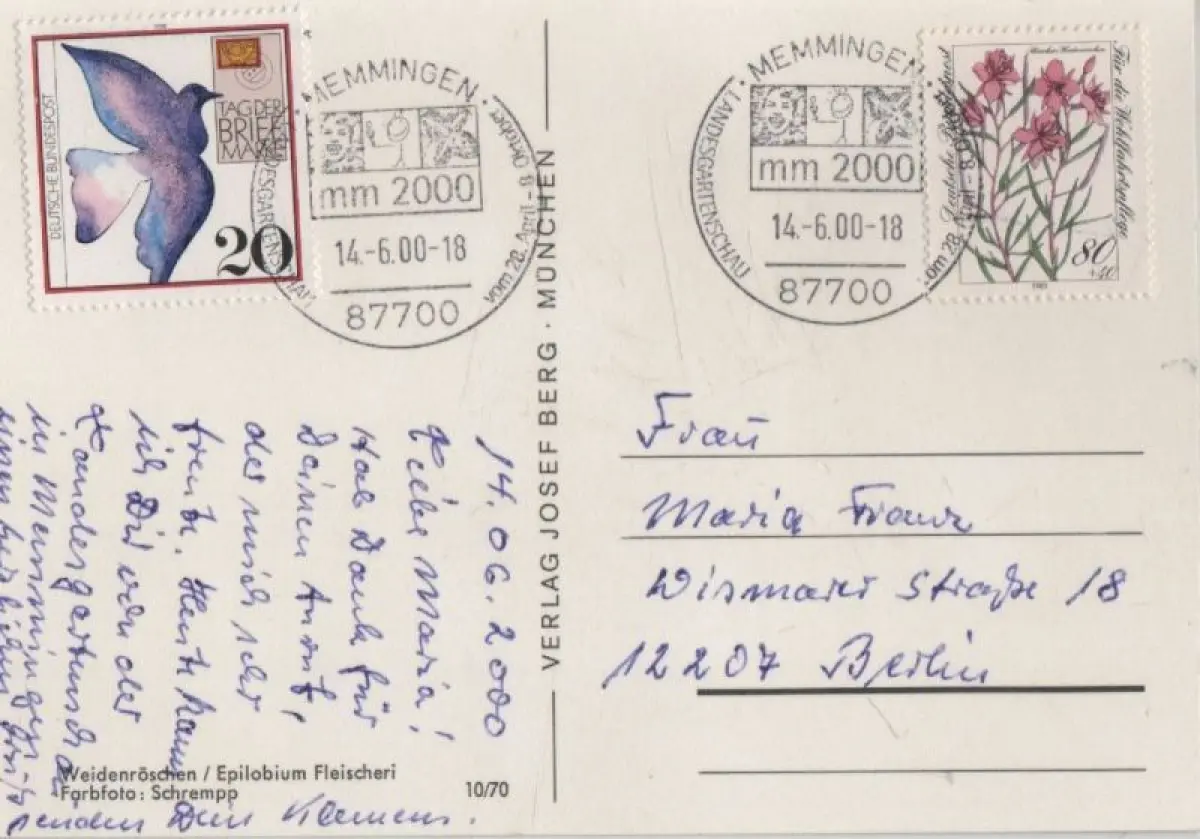 DEUTSCHE BUNDESPOST
TAG DER
BRIEF
MARKE
20
MEMMINGEN
mm 2000
14.-6.00-18
87700
LANDESGARTENSCHAU
vom 28. April - 8. Oktober
MEMMINGEN
mm 2000
14.-6.00-18
87700
LANDESGARTENSCHAU
vom 28. April - 8.
Deutsche Bundespost
Für die Wohlfahrtspflege
80
+40
1983
VERLAG JOSEF BERG · MÜNCHEN
14.06.2000
Liebe Maria!
Hab Dank für
Deinen Anruf,
der mich sehr
freute. Heute kann
ich Dir von der
Landesgartenschau
in Memmingen
einen herzlichen
senden Dein Klemens.
Weidenröschen / Epilobium Fleischeri
Farbfoto: Schrempp
10/70
Frau
Maria Franz
Wismarer Straße 18
12207 Berlin